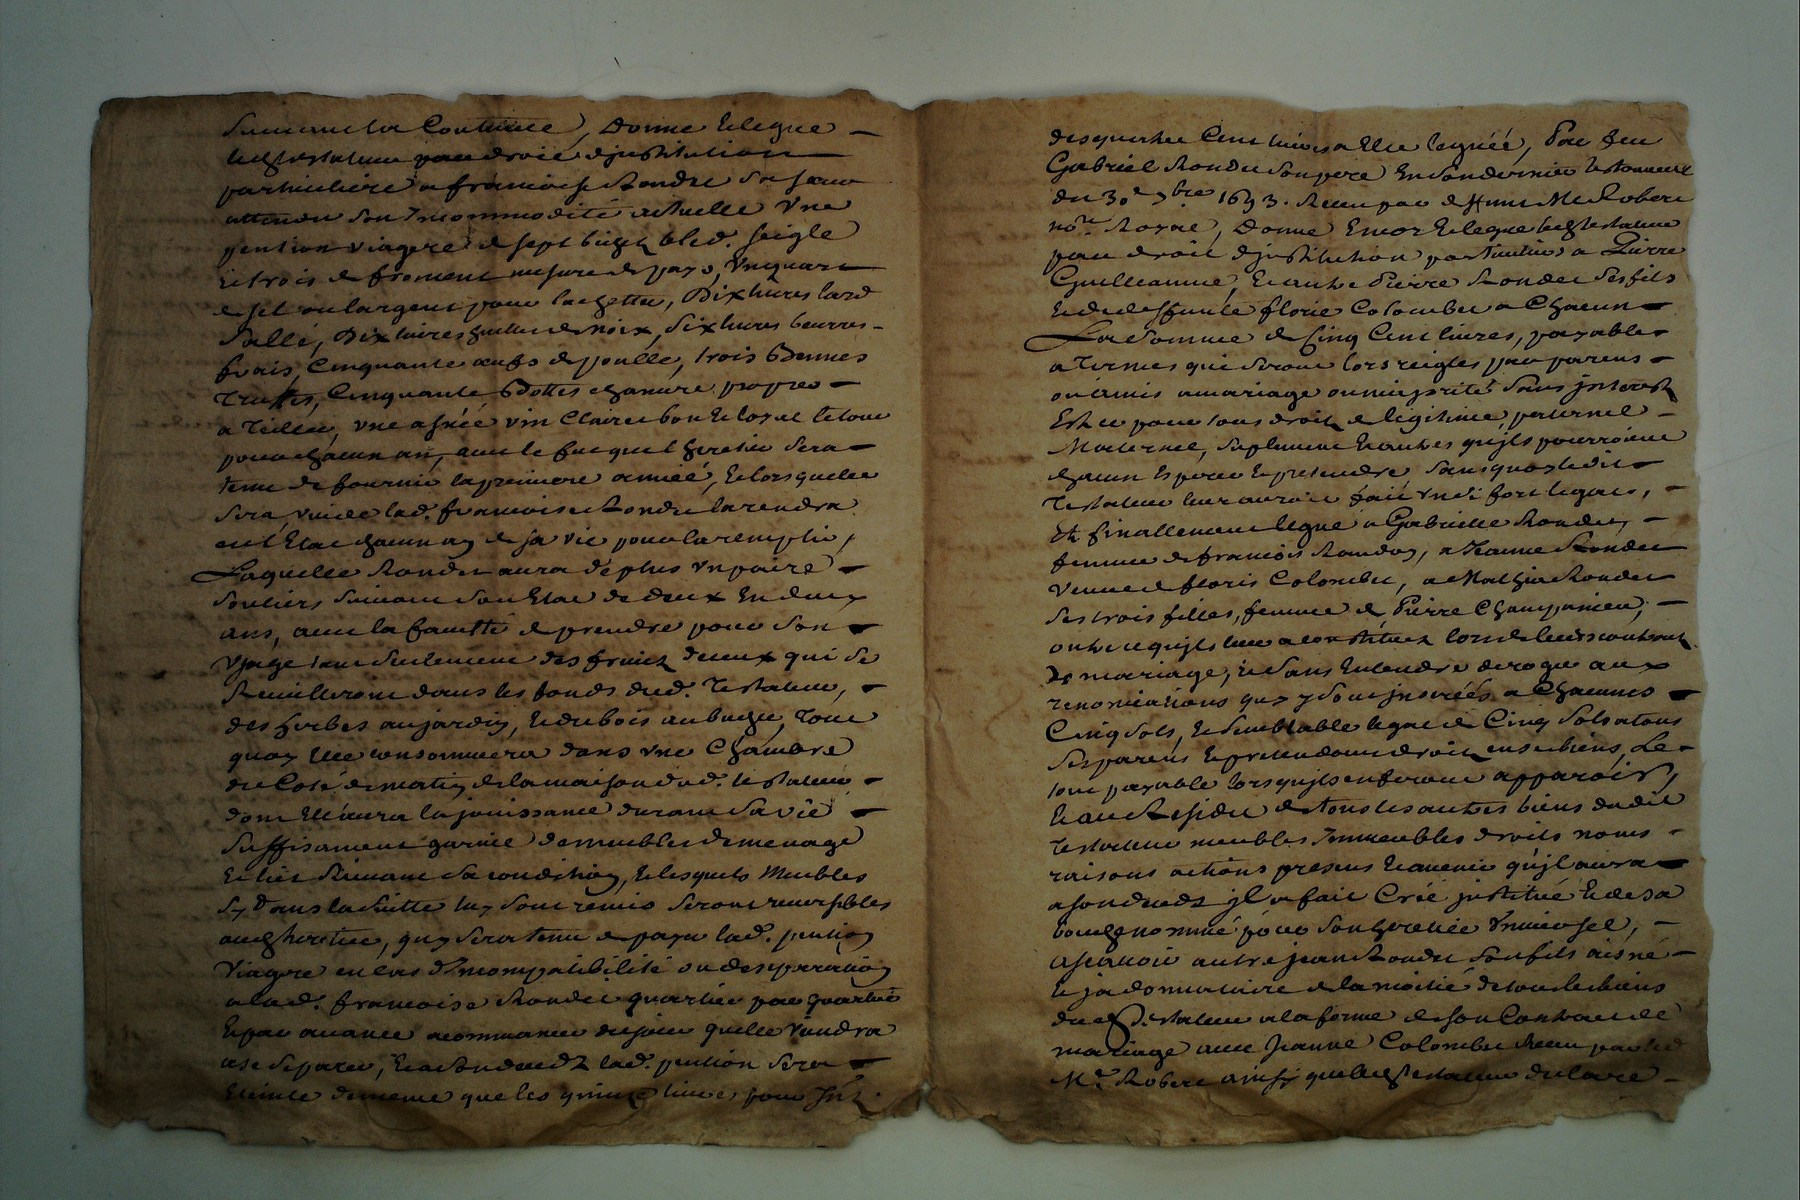 Suivant la Coutume, Donne Et legue
ledt testateur par droit d'institution
particuliere a françoise Rondet Sa soeur
attendu son Incommodité actuelle Une
pention viagere de sept bichets bled seigle
et trois de froment mesure du pays, Un quart
de sel ou largent pour lachetter, Dix livres lard
Sallé, Dix livres huille de noix, Six livres beurre
frais, Cinquante oeufs de poulle, trois Bennes
Truffes, Cinquante Bottes chanvre propre
a Teiller, une asnée vin Clairet bon Et loyal le tout
pour chacun an, avec le susquel heretier sera
tenu de fournir la premiere année, Et lorsquelle
sera vuide lad. françoise Rondet la rendra
en l'Etat chacun an de sa vie pour la remplir,
Laquelle Rondet aura de plus Un paire
Souliers Suivant Son Etat de deux En deux
ans, avec la faculté de prendre pour Son
Usage tant Seulement des fruits d'eceux qui se
Reuilliront dans les fonds dud. Testateur,
des herbes au jardin, Et du bois au bucher, Tout
quoy Elle consommera dans une Chambre
du Costé de matin de la maison dud. testateur
dont Elle aura la jouissance durant Sa vie
Suffisament garnie de meubles de menage
Et lict Suivant Sa condition, Et lesquels Meubles
Sy dans la Suitte luy Sont remis Seront reversibles
audt heretier, quy Sera tenu de payer lad. pention
Viagere en cas d'Incompatibilité ou de separation
a lad. françoise Rondet quartier par quartier
Et par avance a commancer du jour quelle viendra
a se separer, Et a son deceds lad. pention Sera
Eteinte de meme que les quinze livres pour Int.
des quatre Cent livres a Elle leguéé, Par feu
Gabriel Rondet Son pere En Son dernier testament
du 30e 7bre 1693. Receu par deffunt Me Robert
nore. Royal, Donne Encor Et legue ledt testateur
par droit d'institution particuliere a Pierre
Guilleaume, Et autre Pierre Rondet Ses fils
Et de deffunte florie Colombet a Chacun
La Somme de Cinq Cent livres, payable
a Termes qui Seront lors reigles par parens
ou amis a mariage ou majorité Sans interest
Et ce pour tous droits de legitime, paternel
Maternel, Suplement Et autres qu'ils pourroient
chacun Esperer Et pretendre Sans quoy ledit
Testateur leur auroit fait Un Si fort legat,
Et finallement legue a Gabrielle Rondet,
femme de françois Rondy, a Jeanne Rondet
Veuve de floris Colombet, a Mathia Rondet
Ses trois filles, femme de Pierre Champanieu,
outre ce qu'ils leur a constitués lors de leurs contrats
De mariage, Et Sans Entendre deroger aux
renonciations quy y Sont inserés a Chacunes
Cinq Sols, Et Semblable legat de Cinq Sols a tous
Ses parens Et pretendant droits en Ses biens, Le
tout payable lors qu'ils en feront apparoir,
Et au Residu de tous les autres biens dudit
Testateur meubles Immeubles droits noms
raisons actions presens Et avenir qu'il aura
a son deceds il a fait Créé institué Et de Sa
bouche nommé pour Son heretier Universel,
a sçavoir autre jean Rondet Son fils aisné
Et ja donnataire de la moitié de tous les biens
dudt testateur a la forme de Son Contract de
mariage avec Jeanne Colombet Receu par led
Me. Robert ainsy que ledt testateur declare